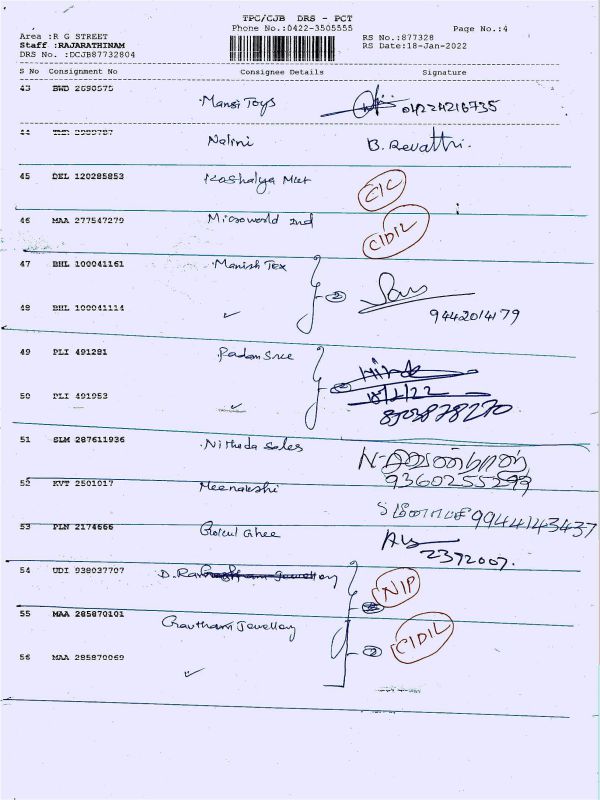 TPC/CJB DRS - PCT
Phone No.:0422-3505555 Page No.:4
Area :R G STREET RS No.:877328
Staff :RAJARATHINAM RS Date:18-Jan-2022
DRS No. :DCJB87732804
S No Consignment No Consignee Details Signature
43 BWD 2690575 Mansi Toys 04224216735
44 Nalini B. Revathi.
45 DEL 120285853 Kashalya Mkt
46 MAA 277547279 Microworld 2nd CIDIL
47 BHL 100041161 Manish Tex
2
48 BHL 100041114 ✓ 9442014179
49 PLI 491281 Padam Sree
50 PLI 491953 ✓
51 SLM 287611936 Nitheda Sales
9360255299
52 KVT 2501017 Meenakshi 9944143437
53 PLN 2174666 Gokul Ghee
2372007.
54 UDI 938037707 NIP
55 MAA 285870101 Gautham Jewellery
2 CIDIL
56 MAA 285870069 ✓